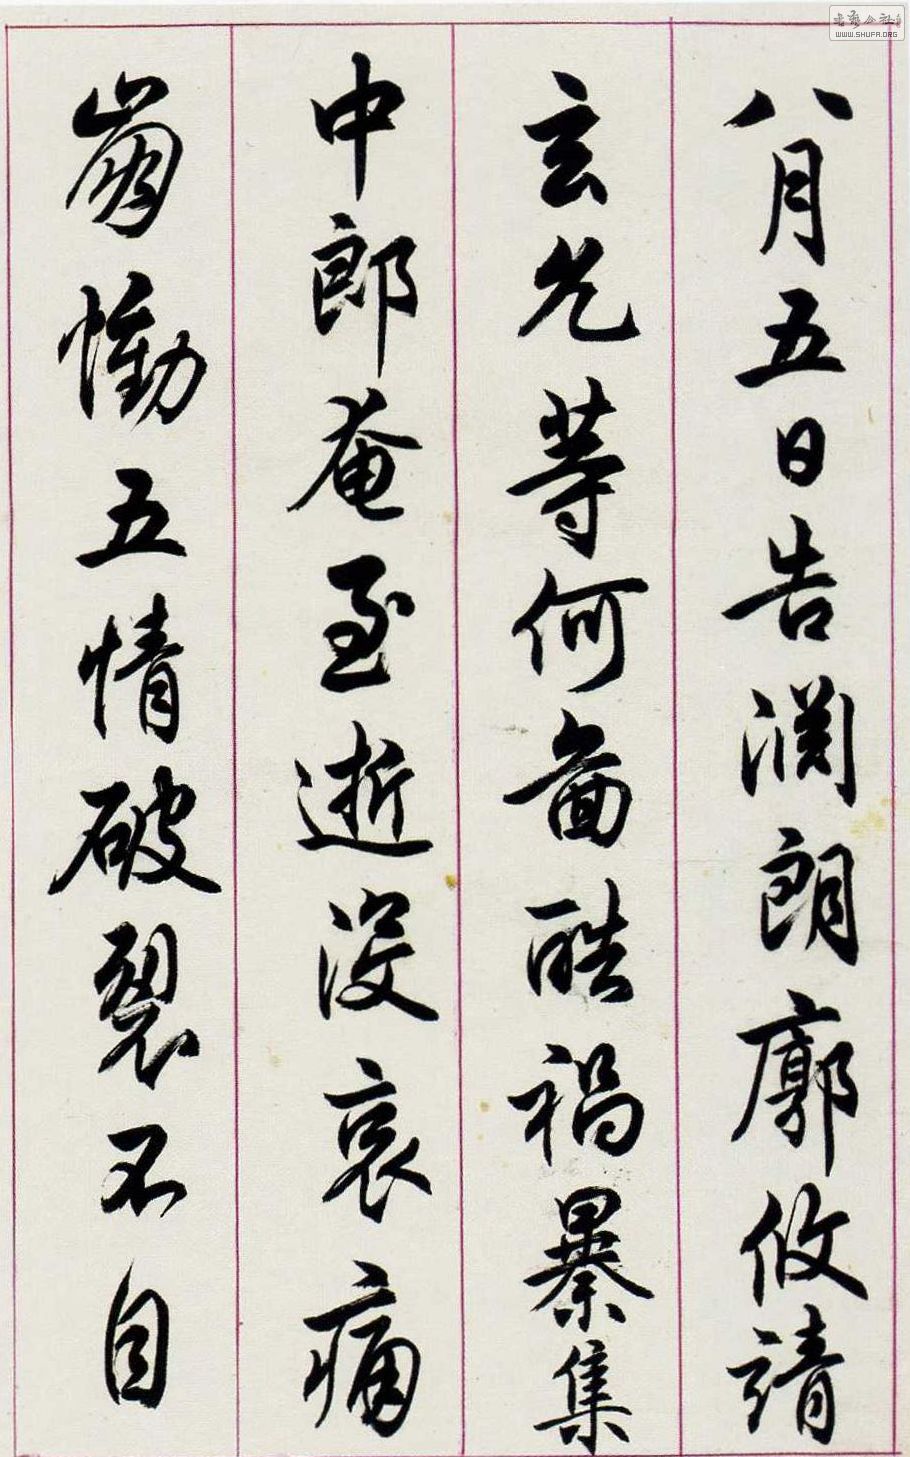 八月五日告渊朗廓攸靖
玄允等何啚酷祸暴集
中郎奄至逝没哀痛
崩恸五情破裂不自
书艺公社
WWW.SHUFA.ORG